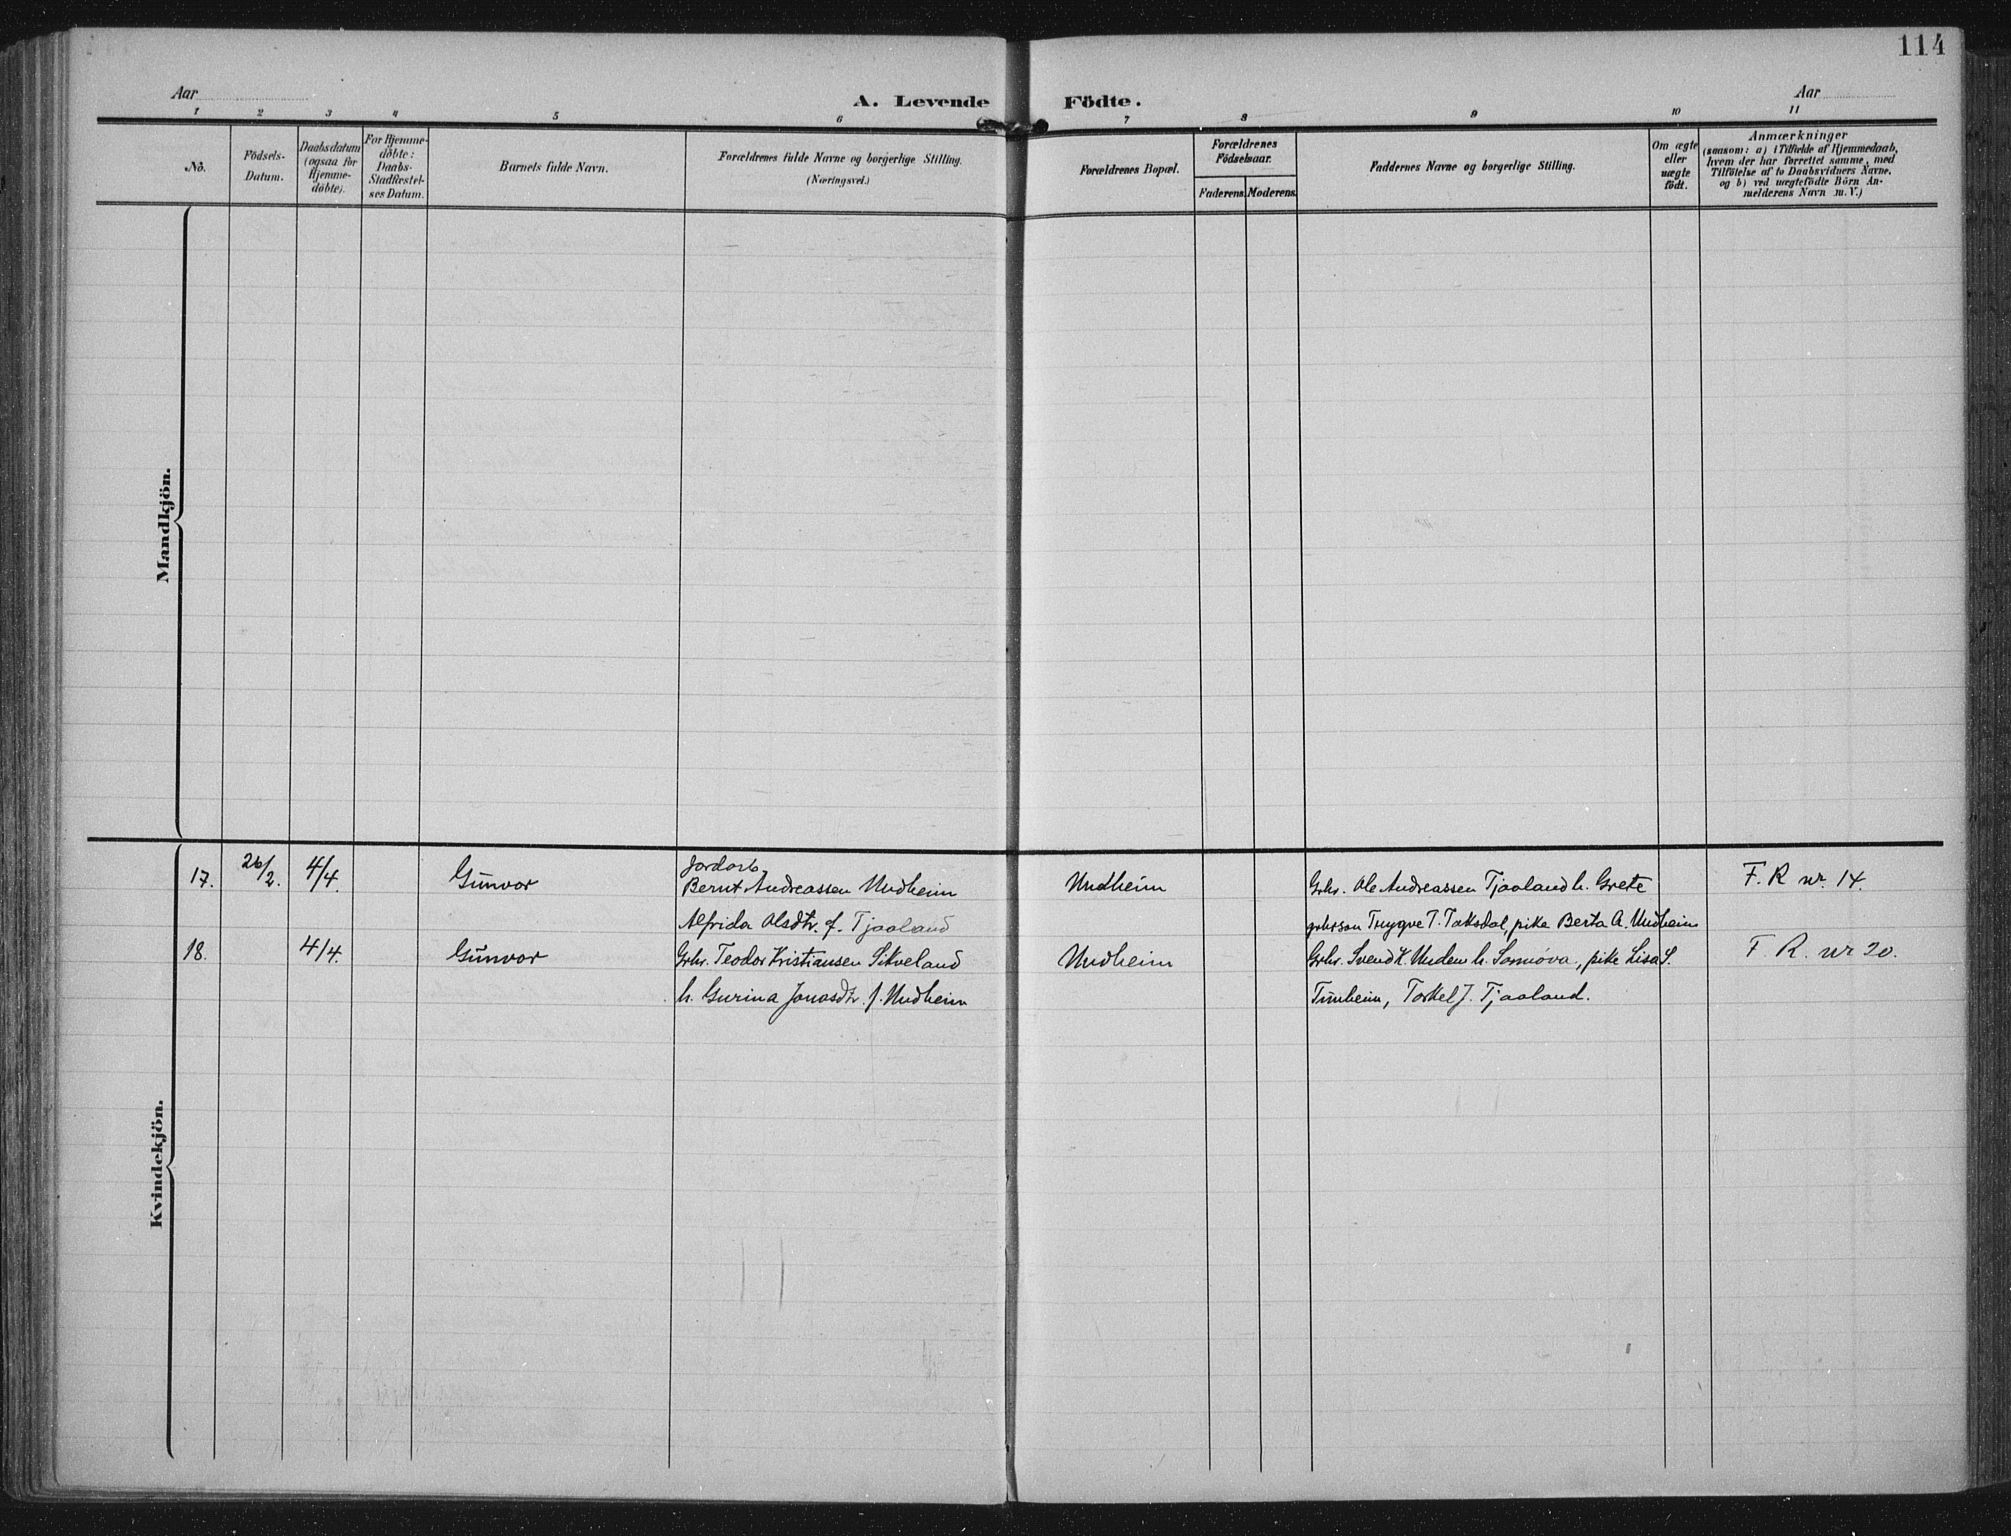 114
Aar
A. Levende Födte.
Aar
1 2 3 4 5 6 7 8 9 10 11
Nô.
Födsels-
Datum.
Daabsdatum
(ogsaa for
Hjemme-
döbte).
For Hjemme-
döbte:
Daabs-
Stadfæstel-
ses Datum.
Barnets fulde Navn.
Forældrenes fulde Navne og borgerlige Stilling.
(Næringsvei.)
Forældrenes Bopæl.
Forældrenes
Födselsaar.
Faderens. Moderens.
Faddernes Navne og borgerlige Stilling.
Om ægte
eller
uægte
födt.
Anmærkninger
(saasom: a) i Tilfælde af Hjemmedaab,
hvem der har forrettet samme, med
Tilföielse af to Daabsvidners Navne,
og b) ved uægtefödte Börn An-
melderens Navn m. V.)
Mandkjön.
Kvindekjön.
Jordarb.
17. 26/2. 4/4. Gunvor Bernt Andreassen Undheim Undheim Grbr. Ole Andreassen Tjaaland h. Grete F. R nr. 14.
Alfrida Olsdtr. f. Tjaaland grbrson Trygve T. Taksdal, pike Berta A. Undheim
18. 4/4. Gunvor Grbr. Teodor Kristiansen Sikveland Undheim Grbr. Svend K. Undem h. , pike Lisa S. F R. nr 20.
h. Gurina Jonasdtr. f. Undheim Tunheim, Torkel J. Tjaaland.